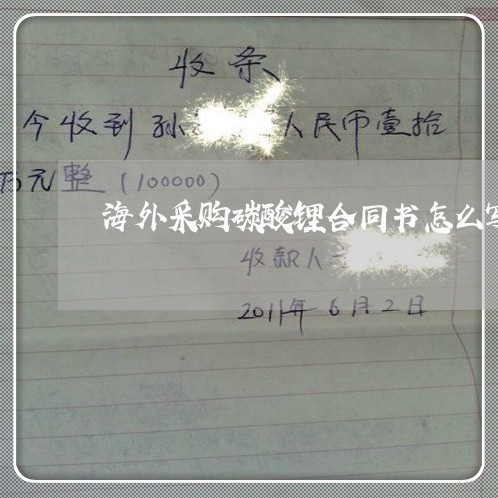 收条
今收到孙 人民币壹拾
万元整（100000）
海外采购碳酸锂合同书怎么写
收款人
2011年6月2日